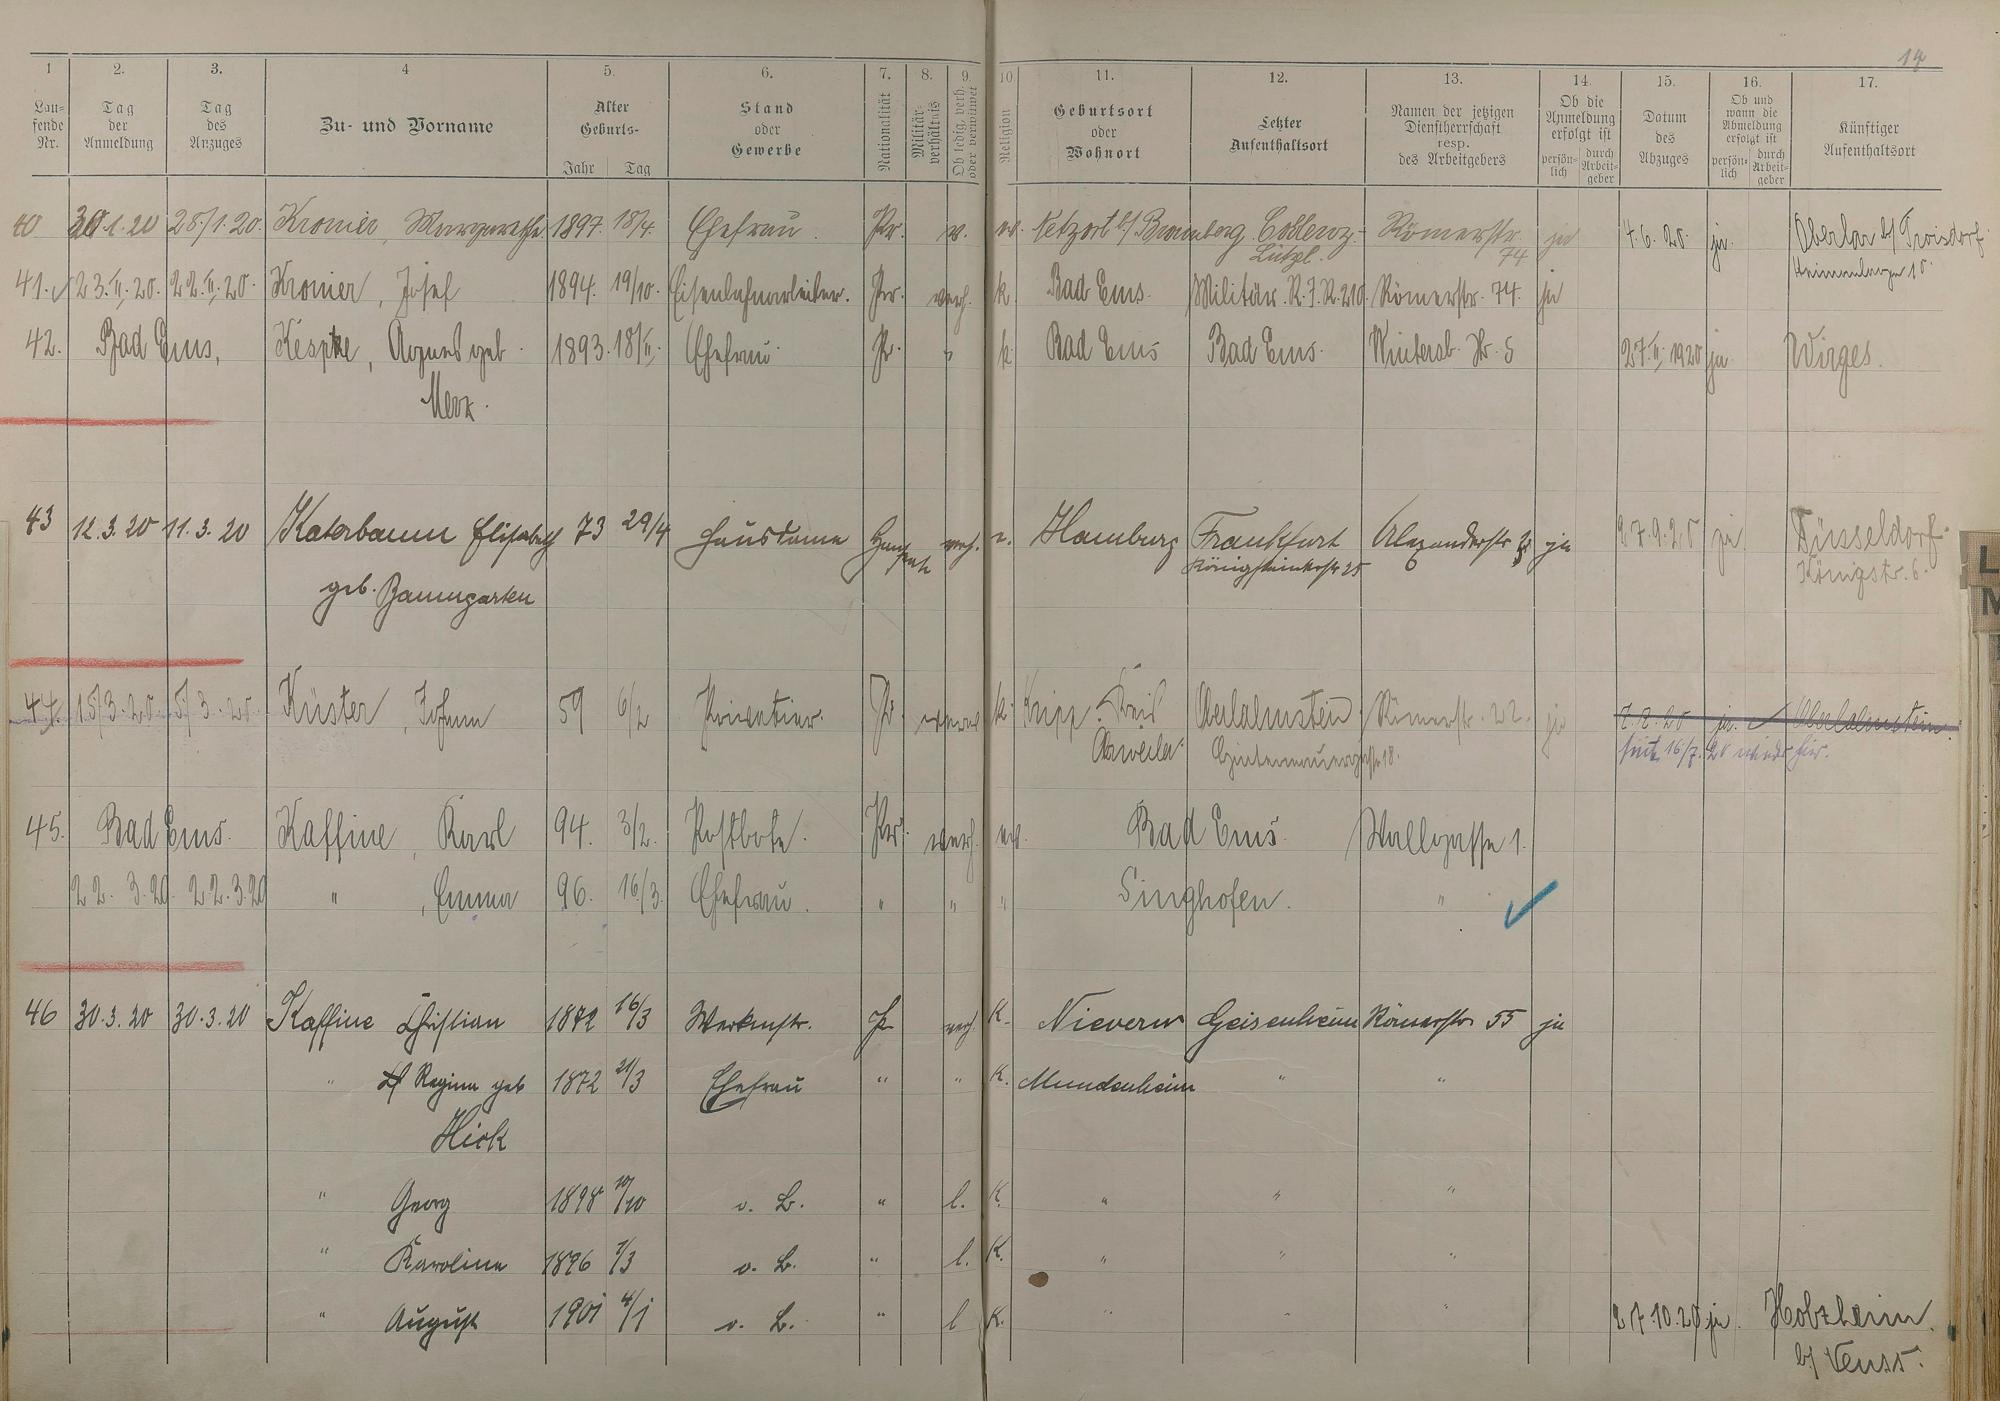 14
1 2. 3. 4 5. 6. 7. 8. 9. 10. 11. 12. 13. 14. 15. 16. 17.
Lau-fende Nr. | Tag der Anmeldung | Tag des Anzuges | Zu- und Vorname | Alter Geburts- Jahr Tag | Stand oder Gewerbe | Nationalität | Militär-verhältnis | Ob ledig, verh. oder verwitwet | Religion | Geburtsort oder Wohnort | Letzter Aufenthaltsort | Namen der jetzigen Dienstherrschaft resp. des Arbeitgebers | Ob die Anmeldung erfolgt ist persön-lich durch Arbeit-geber | Datum des Abzuges | Ob und wann die Abmeldung erfolgt ist persön-lich durch Arbeit-geber | Künftiger Aufenthaltsort
40 30.1.20 28./1.20. Kromer, Margarethe 1897. 18/4. Ehefrau. Pr. v. ev. b/ Bromberg Coblenz- Römerstr. ja 4.6.20. ja. Oberlar b/ Troisdorf.
Lützel. 74
41. 23.II.20. 22.II.20. Kromer, Josef 1894. 19/10. Eisenbahnarbeiter. Pr. verh. k. Bad Ems. Militär. R.J.R. 210. Römerstr. 74. ja
42. Bad Ems, Kespke, Agnes geb. 1893. 18/II. Ehefrau Pr. " k Bad Ems Bad Ems. Wintersb. Str. 5 27.II.1920 ja Wirges.
Merx.
43 12.3.20 11.3.20 Katerbaum Elisabeth 73 29/4 Hausdame verh. Hamburg Frankfurt Alexanderstr ja 27.9.20 ja Düsseldorf
Königsteinerstr 25 Königstr. 6.
geb. Baumgarten
44. 15/3.20. 5/3.20. Küster, Johann 59 6/2 Privatier. Pr. verw. k. Kripp. Kreis Oberlahnstein Römerstr. 22. ja 7.7.20 ja. Oberlahnstein.
Ahrweiler. Hintermauergasse 18. seit 16/7.20 wieder hier.
45. Bad Ems. Kaffine, Karl 94. 3/2. Postbote. Pr. verh. ev. Bad Ems. Wallgasse 1.
22.3.20. 22.3.20 " , Emma 96. 16/3. Ehefrau. " " " Singhofen. "
46 30.3.20 30.3.20 Kaffine Christian 1872 16/3 Werkmstr. Pr verh. K. Nievern Geisenheim Römerstr 55 ja
" Regina geb 1872 21/3 Ehefrau " " K. Mundenheim " "
Hick
" Georg 1898 10/10 o. B. " l. K. " " "
" Karoline 1896 7/3 o. B. " l. K. " " "
" August 1901 4/1 o. B. " l K. " " " 27.10.20 ja. Holzheim
b/ Neuss.